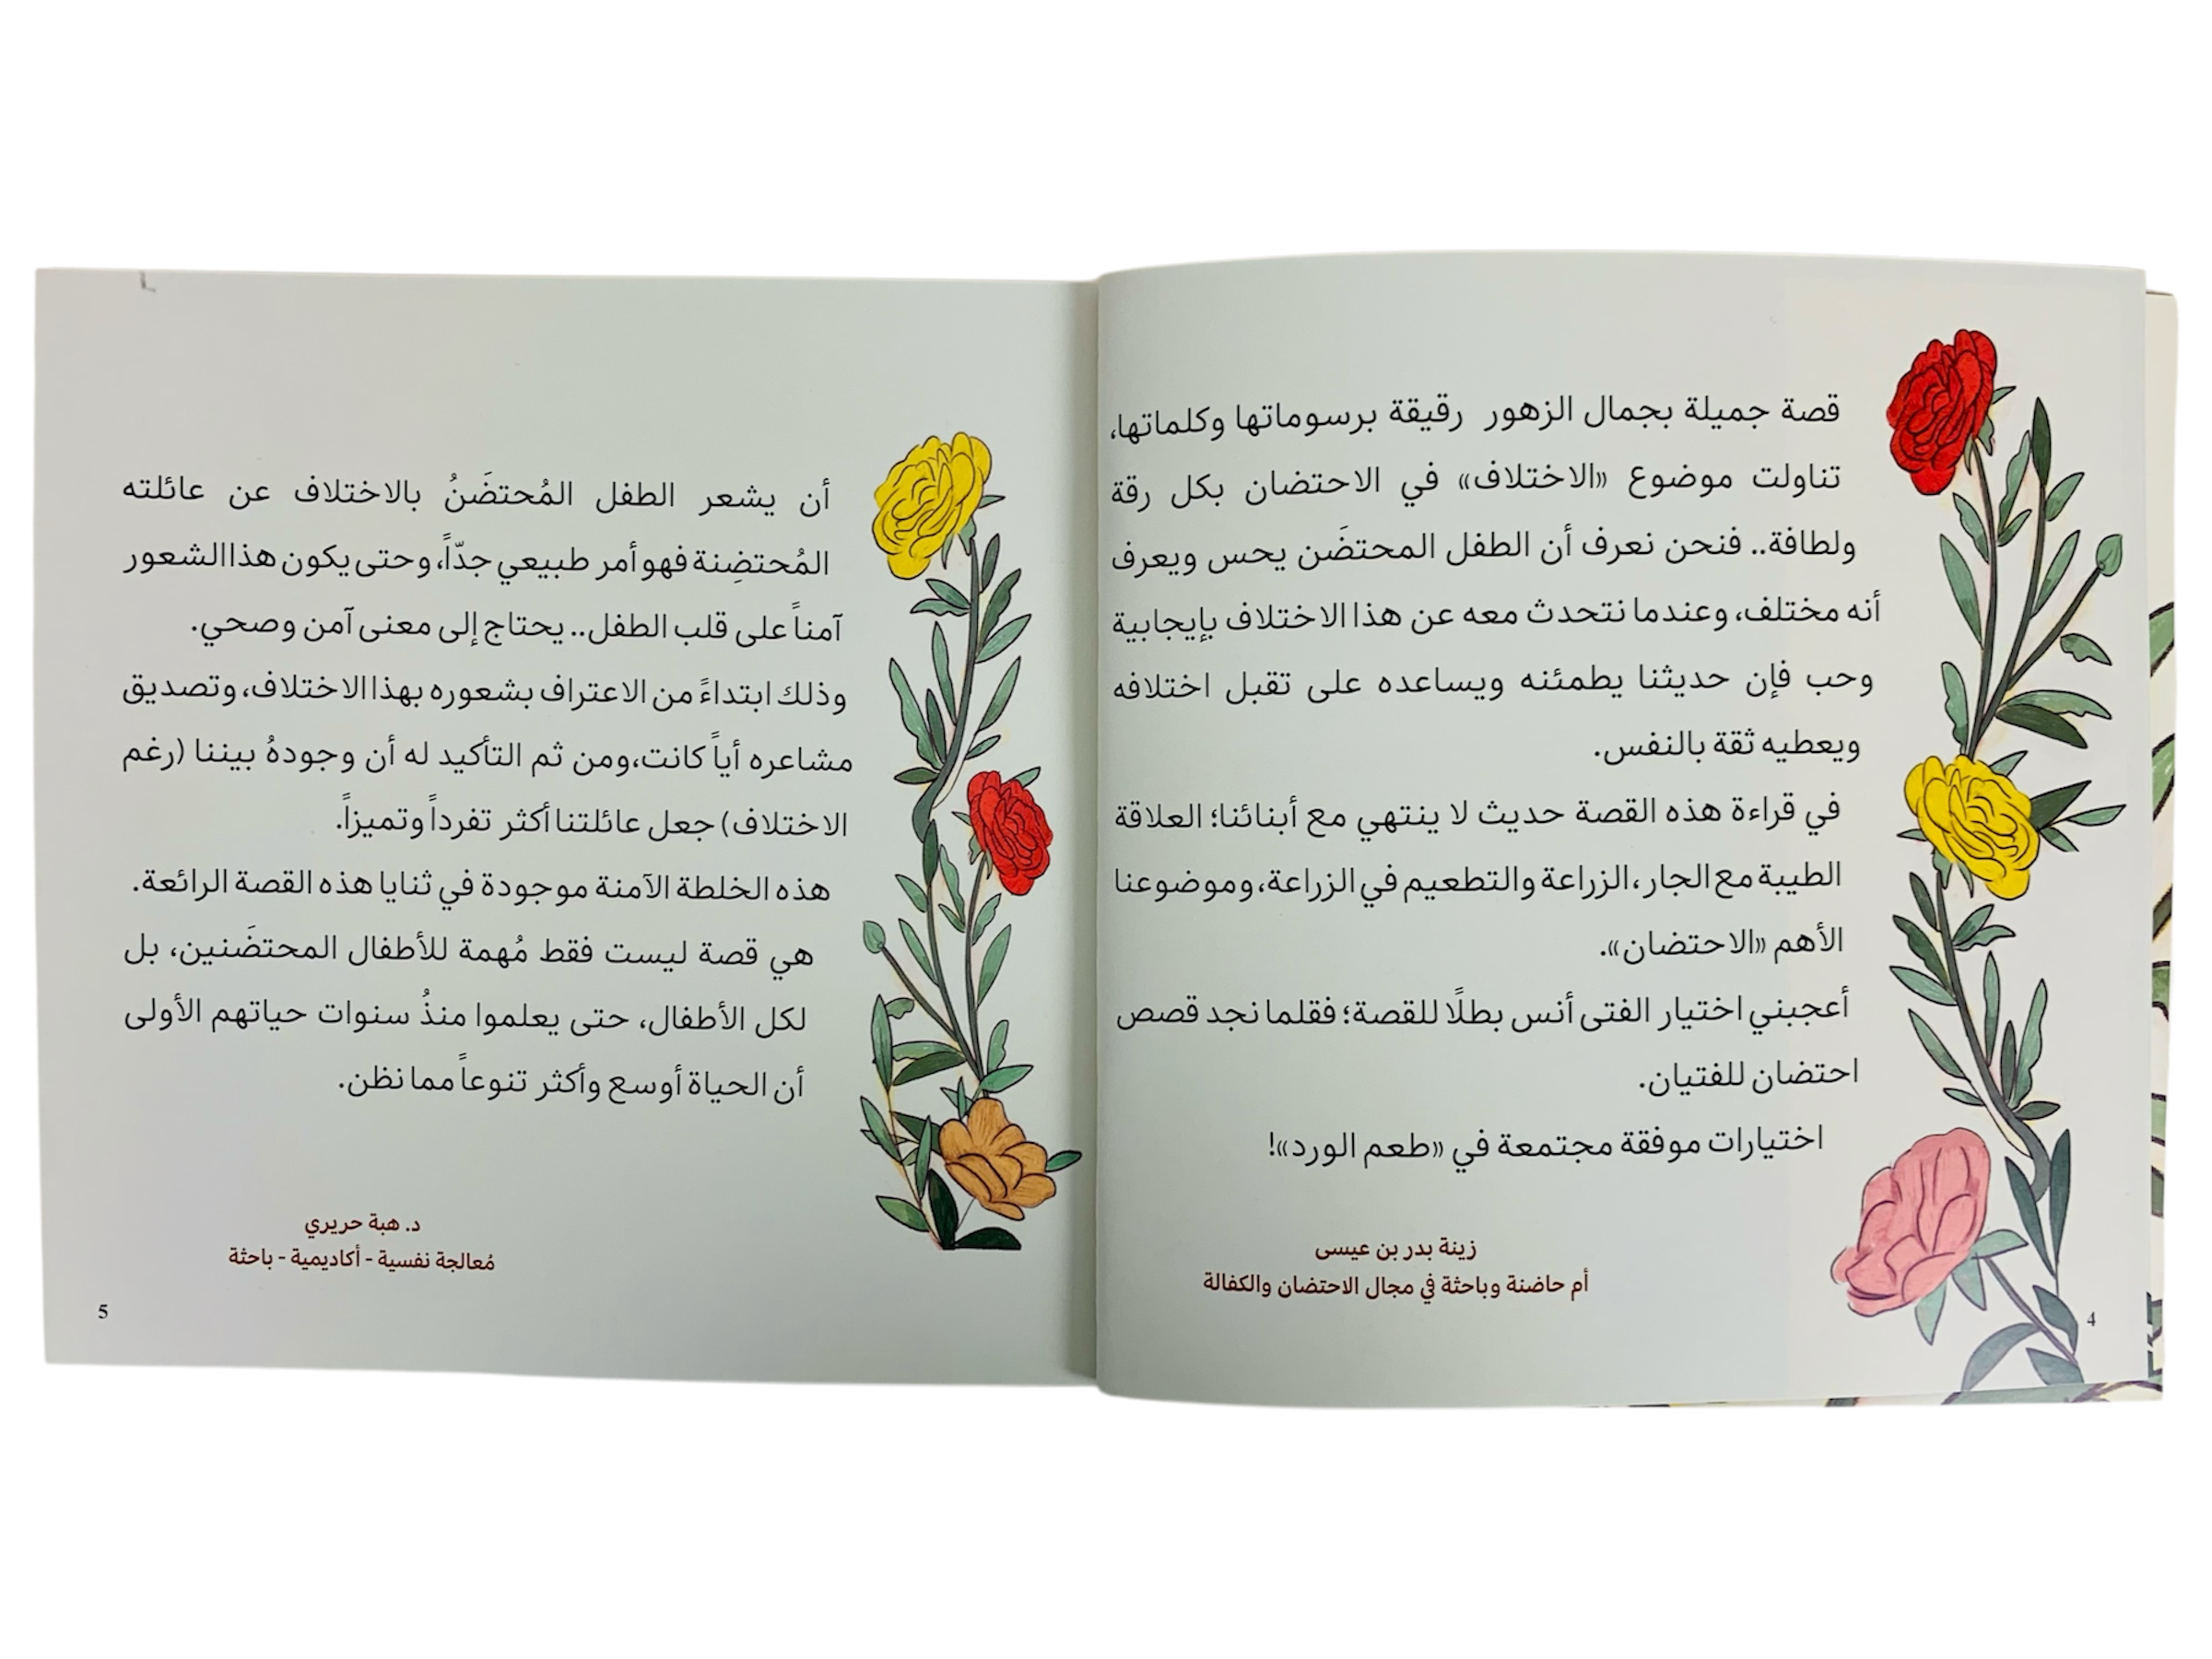 قصة جميلة بجمال الزهور رقيقة برسوماتها وكلماتها،
تناولت موضوع «الاختلاف» في الاحتضان بكل رقة
ولطافة.. فنحن نعرف أن الطفل المحتضَن يحس ويعرف
أنه مختلف، وعندما نتحدث معه عن هذا الاختلاف بإيجابية
وحب فإن حديثنا يطمئنه ويساعده على تقبل اختلافه
ويعطيه ثقة بالنفس.
في قراءة هذه القصة حديث لا ينتهي مع أبنائنا؛ العلاقة
الطيبة مع الجار، الزراعة والتطعيم في الزراعة، وموضوعنا
الأهم «الاحتضان».
أعجبني اختيار الفتى أنس بطلًا للقصة؛ فقلما نجد قصص
احتضان للفتيان.
اختيارات موفقة مجتمعة في «طعم الورد»!
زينة بدر بن عيسى
أم حاضنة وباحثة في مجال الاحتضان والكفالة
4
أن يشعر الطفل المُحتضَنُ بالاختلاف عن عائلته
المُحتضِنة فهو أمر طبيعي جدّاً، وحتى يكون هذا الشعور
آمناً على قلب الطفل.. يحتاج إلى معنى آمن وصحي.
وذلك ابتداءً من الاعتراف بشعوره بهذا الاختلاف، وتصديق
مشاعره أياً كانت، ومن ثم التأكيد له أن وجودهُ بيننا (رغم
الاختلاف) جعل عائلتنا أكثر تفرداً وتميزاً.
هذه الخلطة الآمنة موجودة في ثنايا هذه القصة الرائعة.
هي قصة ليست فقط مُهمة للأطفال المحتضَنين، بل
لكل الأطفال، حتى يعلموا منذُ سنوات حياتهم الأولى
أن الحياة أوسع وأكثر تنوعاً مما نظن.
د. هبة حريري
مُعالجة نفسية - أكاديمية - باحثة
5